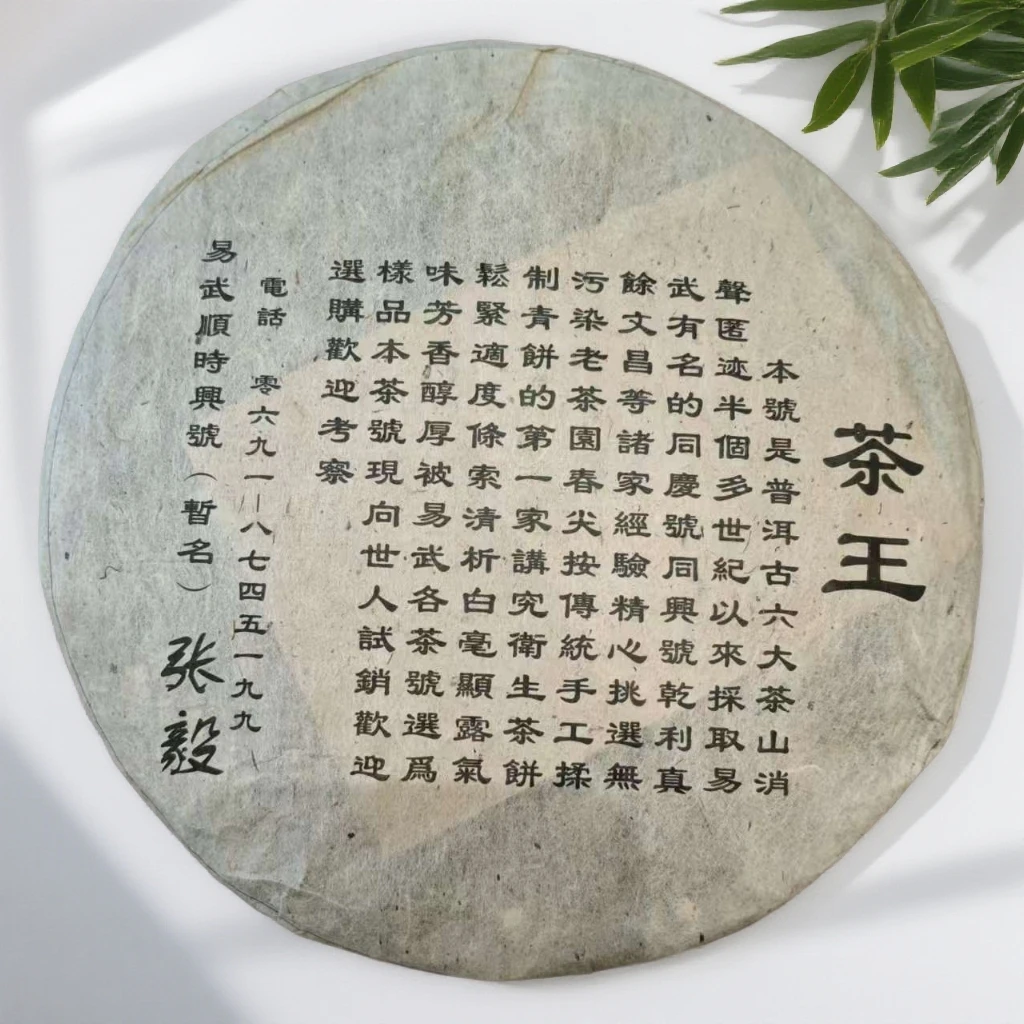 茶王
本號是普洱古六大茶山消
聲匿迹半個多世紀以來採取易
武有名的同慶號同興號乾利真
餘文昌等諸家經驗精心挑選無
污染老茶園春尖按傳統手工揉
制青餅的第一家講究衛生茶餅
鬆緊適度條索清析白毫顯露氣
味芳香醇厚被易武各茶號選爲
樣品本茶號現向世人試銷歡迎
選購歡迎考察
電話 零六九一—八七四五一九九
易武順時興號（暫名） 张毅